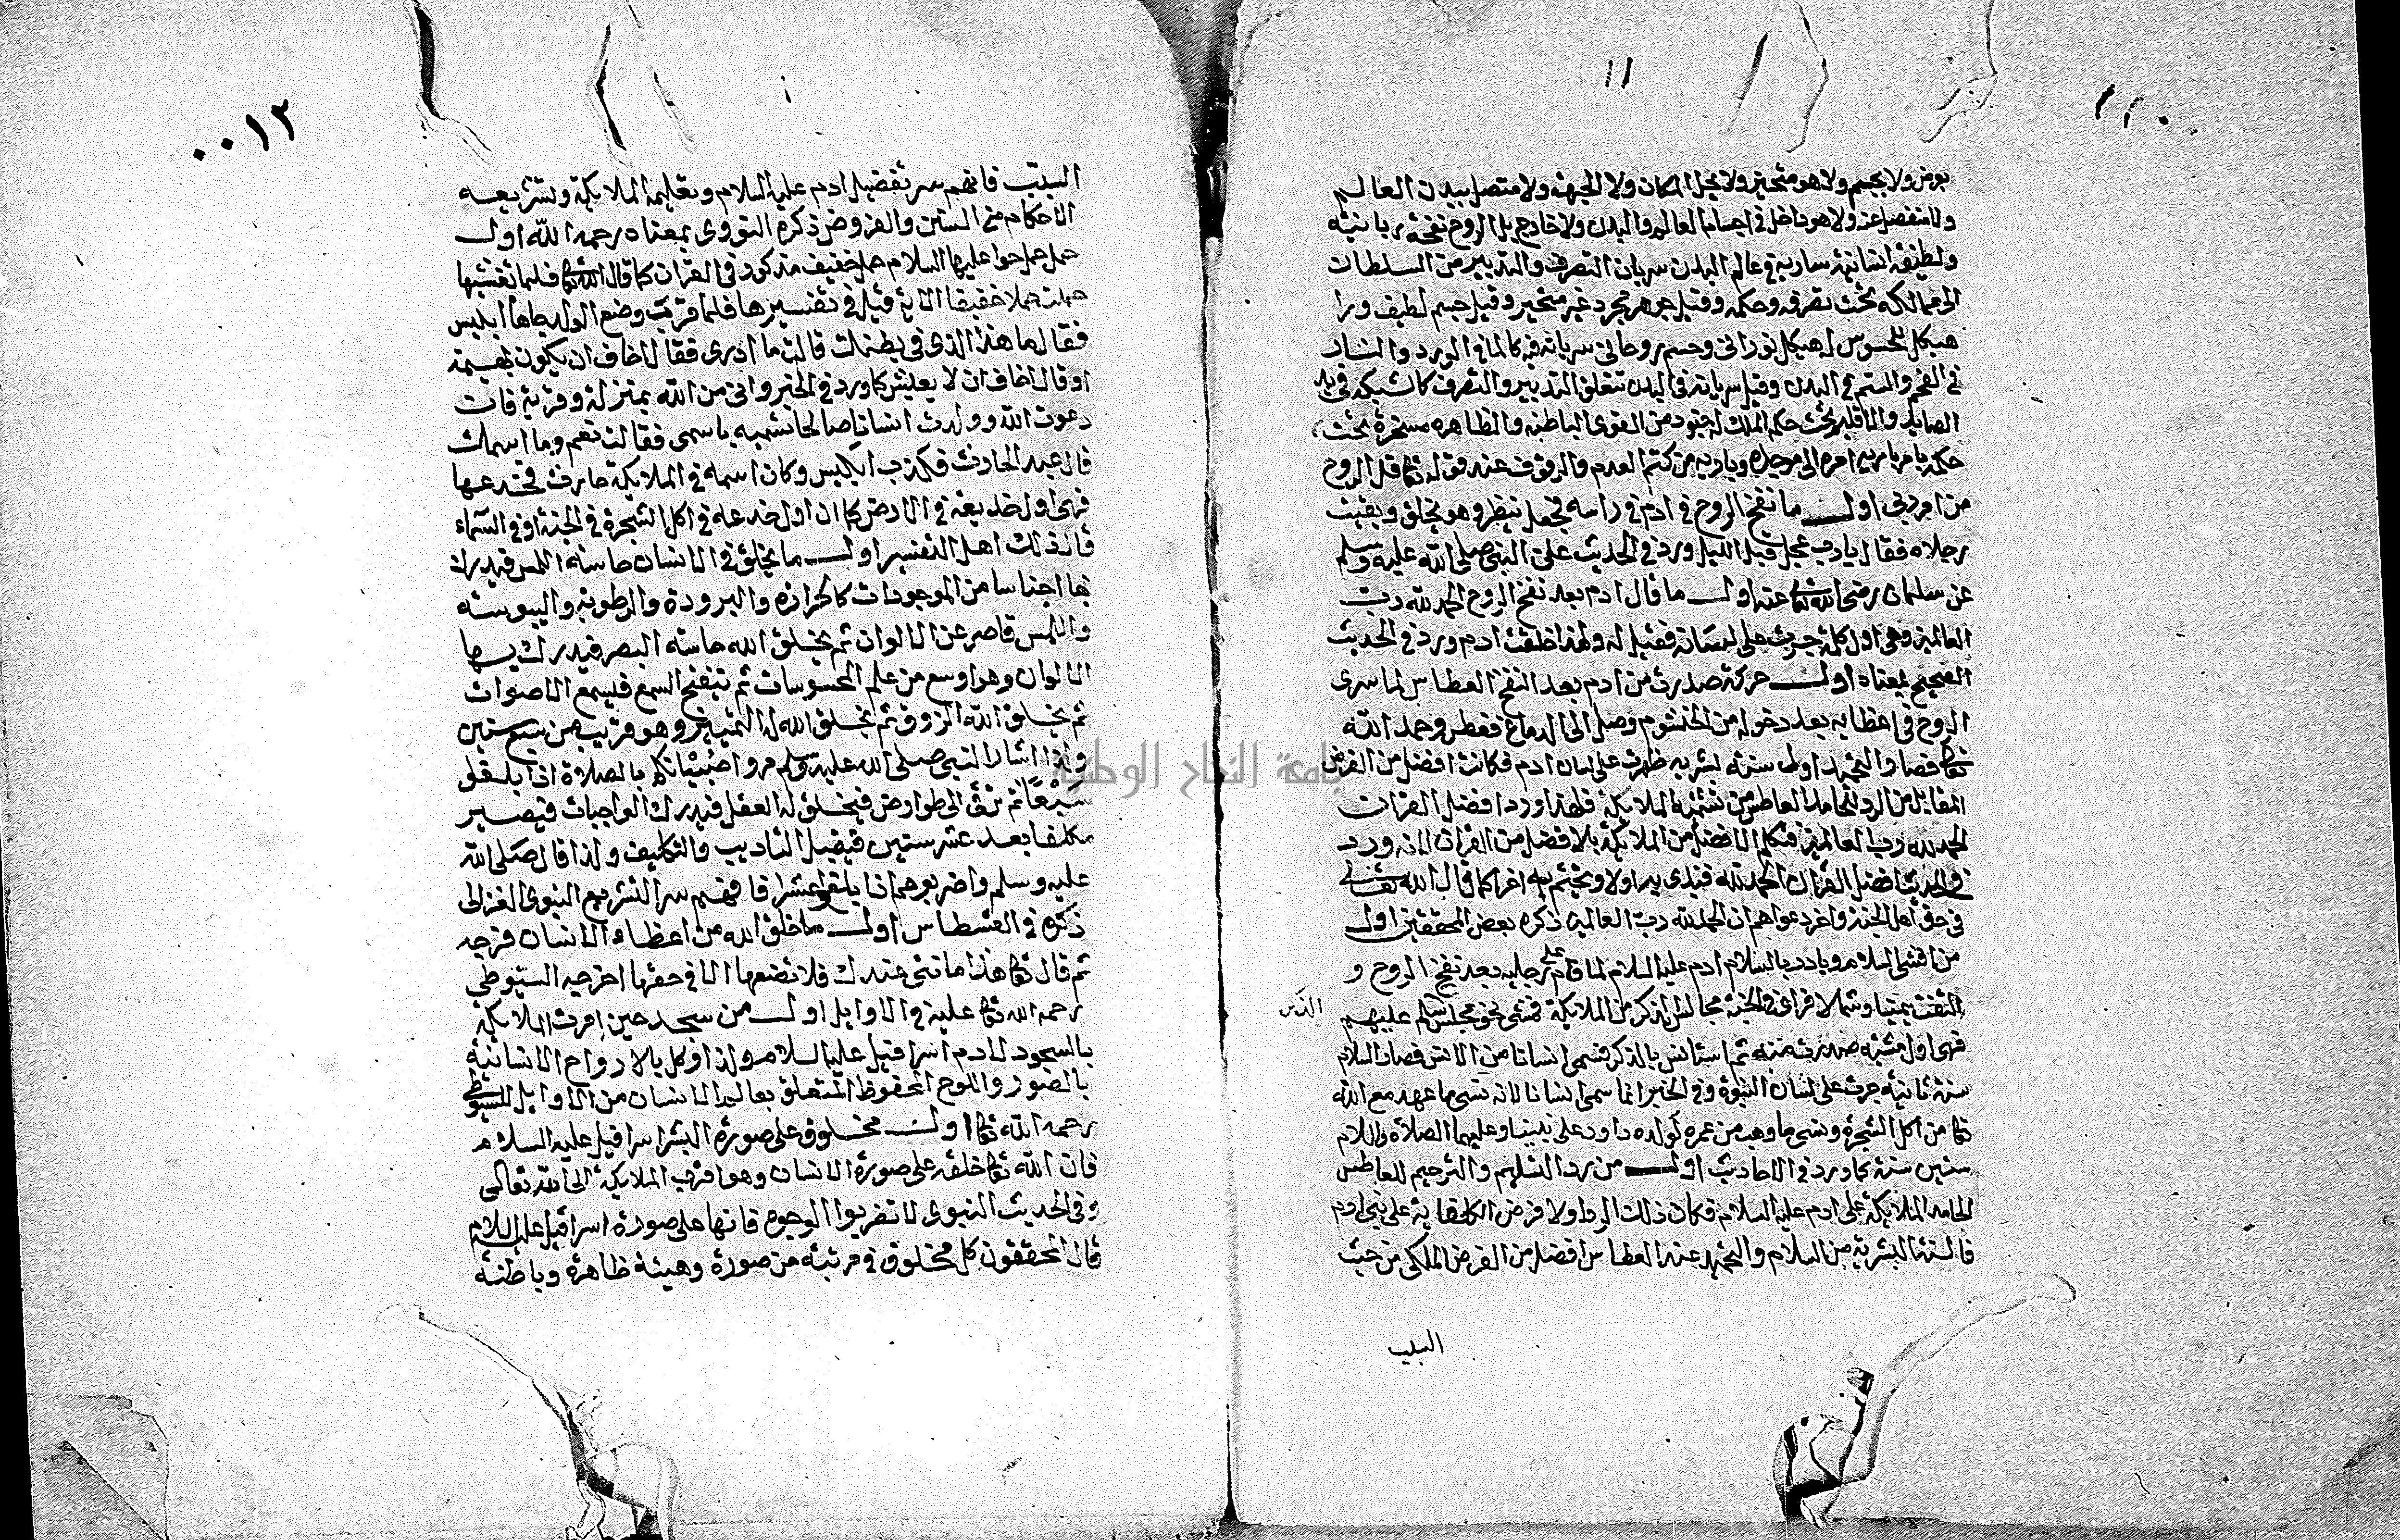 ١١
١١٠٠
بعرض ولا بجسم ولا هو متحيز ولا يحل المكان ولا الجهة ولا متصل ببدن العالم
ولا منفصل عنه ولا هو داخل في اجسام العالم والبدن ولا خارج بل الروح نفخة ربانية
ولطيفة انسانية سارية في عالم البدن سريان التصرف والتدبير من السلطان
الى ممالكه تحت تصرفه وحكمه وقيل جوهر مجرد غير متحيز وقيل جسم لطيف ورا
هيكل المحسوس له هيكل نوراني وجسم روحاني سريانه فيه كالماء في الورد والنار
في الفحم والسم في البدن وقيل سريانه في البدن تتعلق التدبير والتصرف كالشبكة في يد
الصايد والاقليم تحت حكم الملك له جنود من القوى الباطنة والظاهرة مسخرة تحت
حكمه يامر بامر به امره الى موجده وباريه من كتم العدم والوقوف عند قوله تعالى قل الروح
من امر ربي اول ما نفخ الروح في ادم في راسه فجعل ينظر وهو يخلق وبقيت
رجلاه فقال يا رب عجل قبل الليل ورد في الحديث عن النبي صلى الله عليه وسلم
عن سلمان رضي الله تعالى عنه اول ما قال ادم بعد نفخ الروح الحمد لله رب
العالمين وهي اول كلمة جرت على لسانه فقيل له ولهذا خلقت ادم ورد في الحديث
الصحيح بمعناه اول حركة صدرت من ادم بعد النفخ العطاس لما سرى
الروح في اعضايه بعد دخوله من الخيشوم وصل الى الدماغ فعطس وحمد الله
تعالى فصار التحميد اول سنة بشرية ظهرت على لسان ادم فكانت افضل من الفرض
المقابل من الرد للحامد العاطس من تشميته الملائكة فلهذا ورد افضل القران
الحمد لله رب العالمين فتكلم الافضل من الملائكة بالافضل من القران لانه ورد
في الحديث افضل القران الحمد لله فيبدى به اولا ويختم به اخرا كما قال الله تعالى
في حق اهل الجنة واخر دعواهم ان الحمد لله رب العالمين ذكره بعض المحققين اول
من افشى السلام وبادر بالسلام ادم عليه السلام لما قام على رجليه بعد نفخ الروح و
التفت يمينا وشمالا فراى في الجنة مجالس الذكر من الملائكة فمشى نحو مجلس سلم عليهم الذكر
فهي اول مشية صدرت منه ثم استانس بالذكر فسمى انسانا من الانس فصار السلام
سنة ثانية جرت على لسان النبوة وفي الخبر انما سمى انسانا لانه نسى ما عهد مع الله
تعالى من اكل الشجرة ونسى ما وهب من عمره لولده داود على نبينا وعليهما الصلاة والسلام
ستين سنة كما ورد في الاحاديث اول من رد التسليم والترحيم للعاطس
الحامد الملائكة على ادم عليه السلام فكان ذلك الرد اولا فرض الكفاية على بني ادم
فالسنة البشرية من السلام والتحميد عند العطاس افضل من الفرض الملكي من حيث
السبب
٠٠١٢
السبب فافهم سر تفضيل ادم عليه السلام وتعليمه الملائكة وتشريعه
الاحكام من السنن والفروض ذكره النووي بمعناه رحمه الله اول
حمل حمل حوا عليها السلام حمل خفيف مذكور في القران كما قال الله تعالى فلما تغشيها
حملت حملا خفيفا الاية قيل في تفسيرها فلما قربت وضع الولد جاها ابليس
فقال ما هذا الذي في بطنك قالت ما ادرى فقال اخاف ان يكون بهيمة
او قال اخاف ان لا يعيش كما ورد في الخبر وانى من الله بمنزلة وقربة فان
دعوت الله وولدت انسانا صالحا تسميه باسمى فقالت نعم وما اسمك
قال عبد الحارث فكذب ابليس وكان اسمه في الملائكة حارث فخدعها
فهي اول خديعة في الارض كما ان اول خدعه في اكل الشجرة في الجنة او في السماء
قال ذلك اهل التفسير اول ما يخلق في الانسان حاسة اللمس فيدرك
بها اجناسا من الموجودات كالحرارة والبرودة والرطوبة واليبوسة
واللمس قاصر عن الالوان ثم يخلق الله حاسة البصر فيدرك بها
الالوان وهو اوسع من علم المحسوسات ثم ينفتح السمع فيسمع الاصوات
ثم يخلق الله الذوق ثم يخلق الله له التمييز وهو قريب من سبع سنين
ولذا اشار النبي صلى الله عليه وسلم مروا صبيانكم بالصلاة اذا بلغوا
سبعا ثم ترقى الى طور ارفع فيخلق له العقل فيدرك الواجبات فيصير
مكلفا بعد عشر سنين فيقبل التاديب والتكليف ولذا قال صلى الله
عليه وسلم واضربوهم اذا بلغوا عشرا فافهم سر التشريع النبوى الغزالى
ذكره في القسطاس اول ما خلق الله من اعضاء الانسان فرجه
ثم قال تعالى هذا امانتى عندك فلا تضعها الا في حقها اخرجه السيوطى
رحمه الله تعالى عليه في الاوايل اول من سجد حين امرت الملائكة
بالسجود لادم اسرافيل عليه السلام ولذا وكل بالارواح الانسانية
بالصور واللوح المحفوظ المتعلق بعالم الانسان من الاوايل للسيوطى
رحمه الله تعالى اول مخلوق على صورة البشر اسرافيل عليه السلام
فان الله تعالى خلقه على صورة الانسان وهو اقرب الملائكة الى الله تعالى
وفي الحديث النبوى لا تضربوا الوجوه فانها على صورة اسرافيل عليه السلام
قال المحققون كل مخلوق في مرتبة من صورة وهيئة ظاهرة وباطنة
جامعة النجاح الوطنية